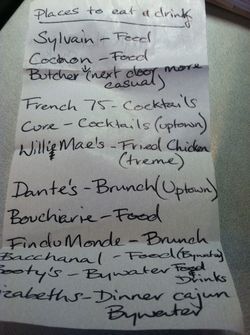 Places to eat & drink
Sylvain - Food
Cochon - Food
Butcher (next door more
casual)
French 75 - Cocktails
Cure - Cocktails (uptown)
Willie Mae's - Fried Chicken
(treme)
Dante's - Brunch (Uptown)
Boucharie - Food
Findu Monde - Brunch
Bacchanal - Food (Bywater)
Booty's - Bywater Food &
Drinks
izabeths - Dinner cajun
Bywater